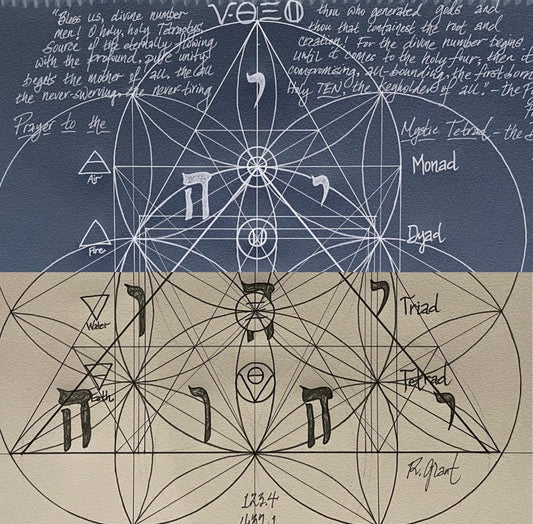 "Bless us, divine number thou who generated gods and
men! O holy, holy thou that containest the root and
source of the eternally flowing creation! For the divine number begins
with the profound, pure unity until it comes to the holy four; then it
begets the mother of all, the all compromising, all-bounding, the first born
the never-swerving, the never-tiring Holy TEN, the keyholder of all." - the
Prayer to the Mystic Tetrad - the
י
Air Monad
יה
Fire Dyad
יהו
Water Triad
Earth Θ Tetrad
יהוה
R. Grant
123.4